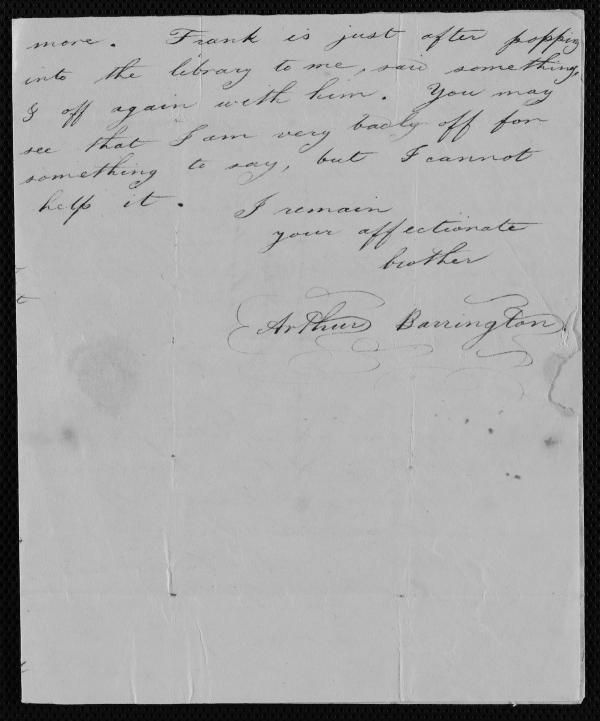 more. Frank is just after popping
into the library to me, said something,
& off again with him. You may
see that I am very badly off for
something to say, but I cannot
help it.
I remain
your affectionate
brother
Arthur Barrington.